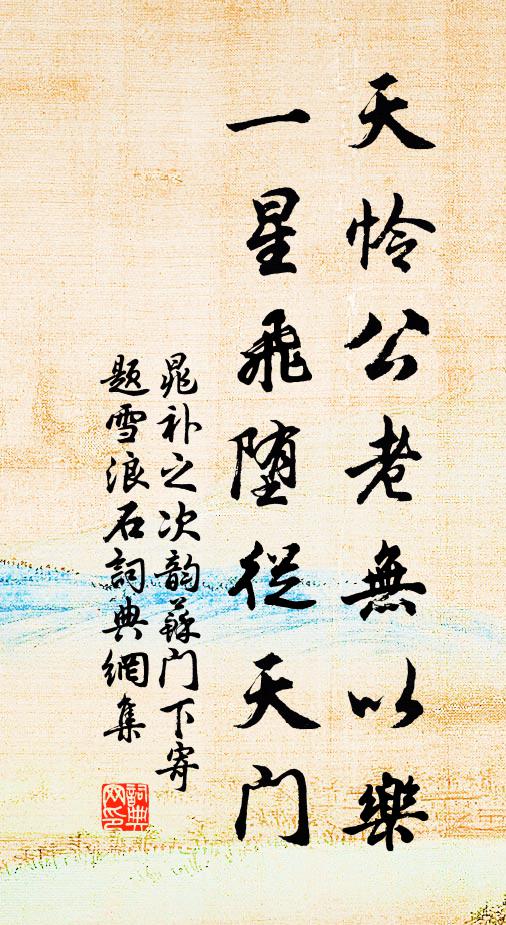 天怜公老無以樂
一星飛堕從天门
晁补之次韵蘇门下寄
题雪浪石詞典網集
詞典
网印